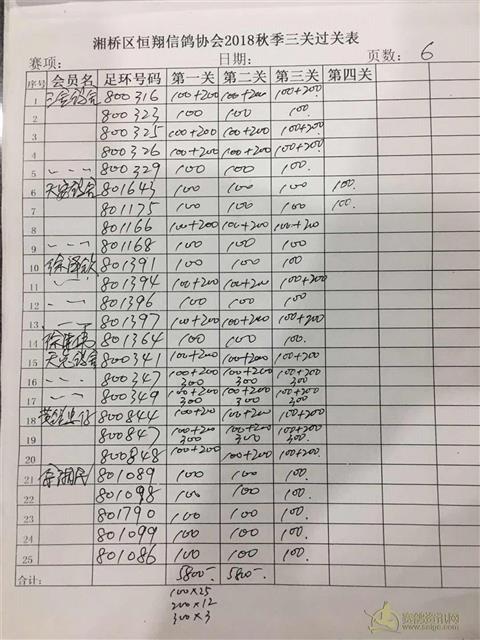 湘桥区恒翔信鸽协会2018秋季三关过关表
赛项: 日期: 页数: 6
序号 会员名 足环号码 第一关 第二关 第三关 第四关
1 三金鸽舍 800316 100+200 100+200 100+200
2 800323 100 100 100
3 800325 100+200 100+200 100+200
4 800326 100+200 100+200 100+200
5 800329 100 100 100
6 天安鸽舍 801643 100 100 100 100
7 801175 100 100 100 100
8 801166 100+200 100+200 100+200
9 801168 100 100 100
10 801391 100 100 100
11 801394 100+200 100+200 100+200
12 801396 100 100 100
13 801397 100+200 100+200 100+200
14 801364 100 100 100
15 鸽舍 800341 100+200 100+200 100+200
16 800347 100+200 300 100+200 300 100+200 300
17 800349 100+200 300 100+200 300 100+200 300
18 800844 100+200 100+200 100+200
19 800847 100+200 300 100+200 300 100+200 300
20 800848 100+200 100+200 100+200
21 801089 100 100 100
22 801098 100 100 100
23 801790 100 100 100
24 801099 100 100 100
25 801086 100 100 100
合计: 5800- 5800-
100×25
200×12
300×3
赛鸽资讯网
www.saige.com